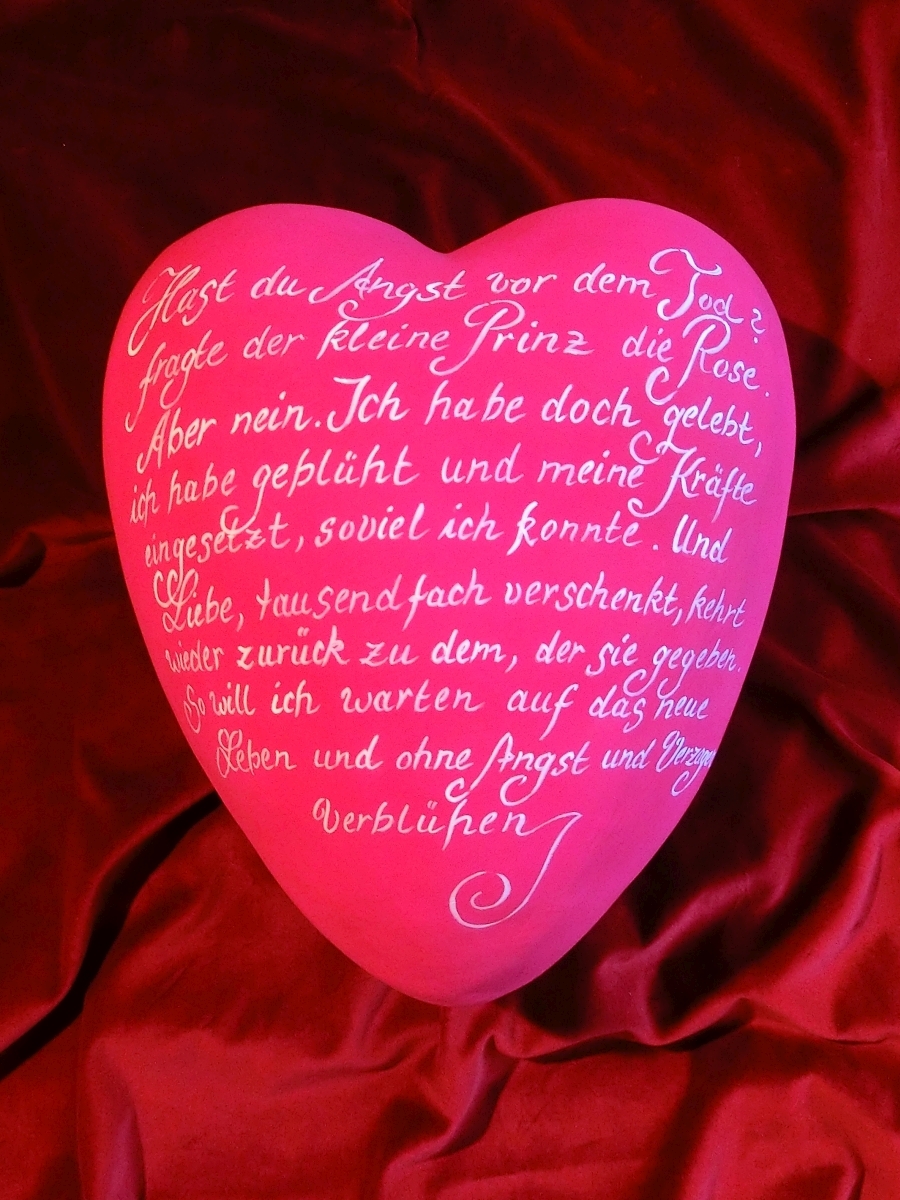 Hast du Angst vor dem Tod?
fragte der kleine Prinz die Rose.
Aber nein. Ich habe doch gelebt,
ich habe geblüht und meine Kräfte
eingesetzt, soviel ich konnte. Und
Liebe, tausendfach verschenkt, kehrt
wieder zurück zu dem, der sie gegeben.
So will ich warten auf das neue
Leben und ohne Angst und
verblühen